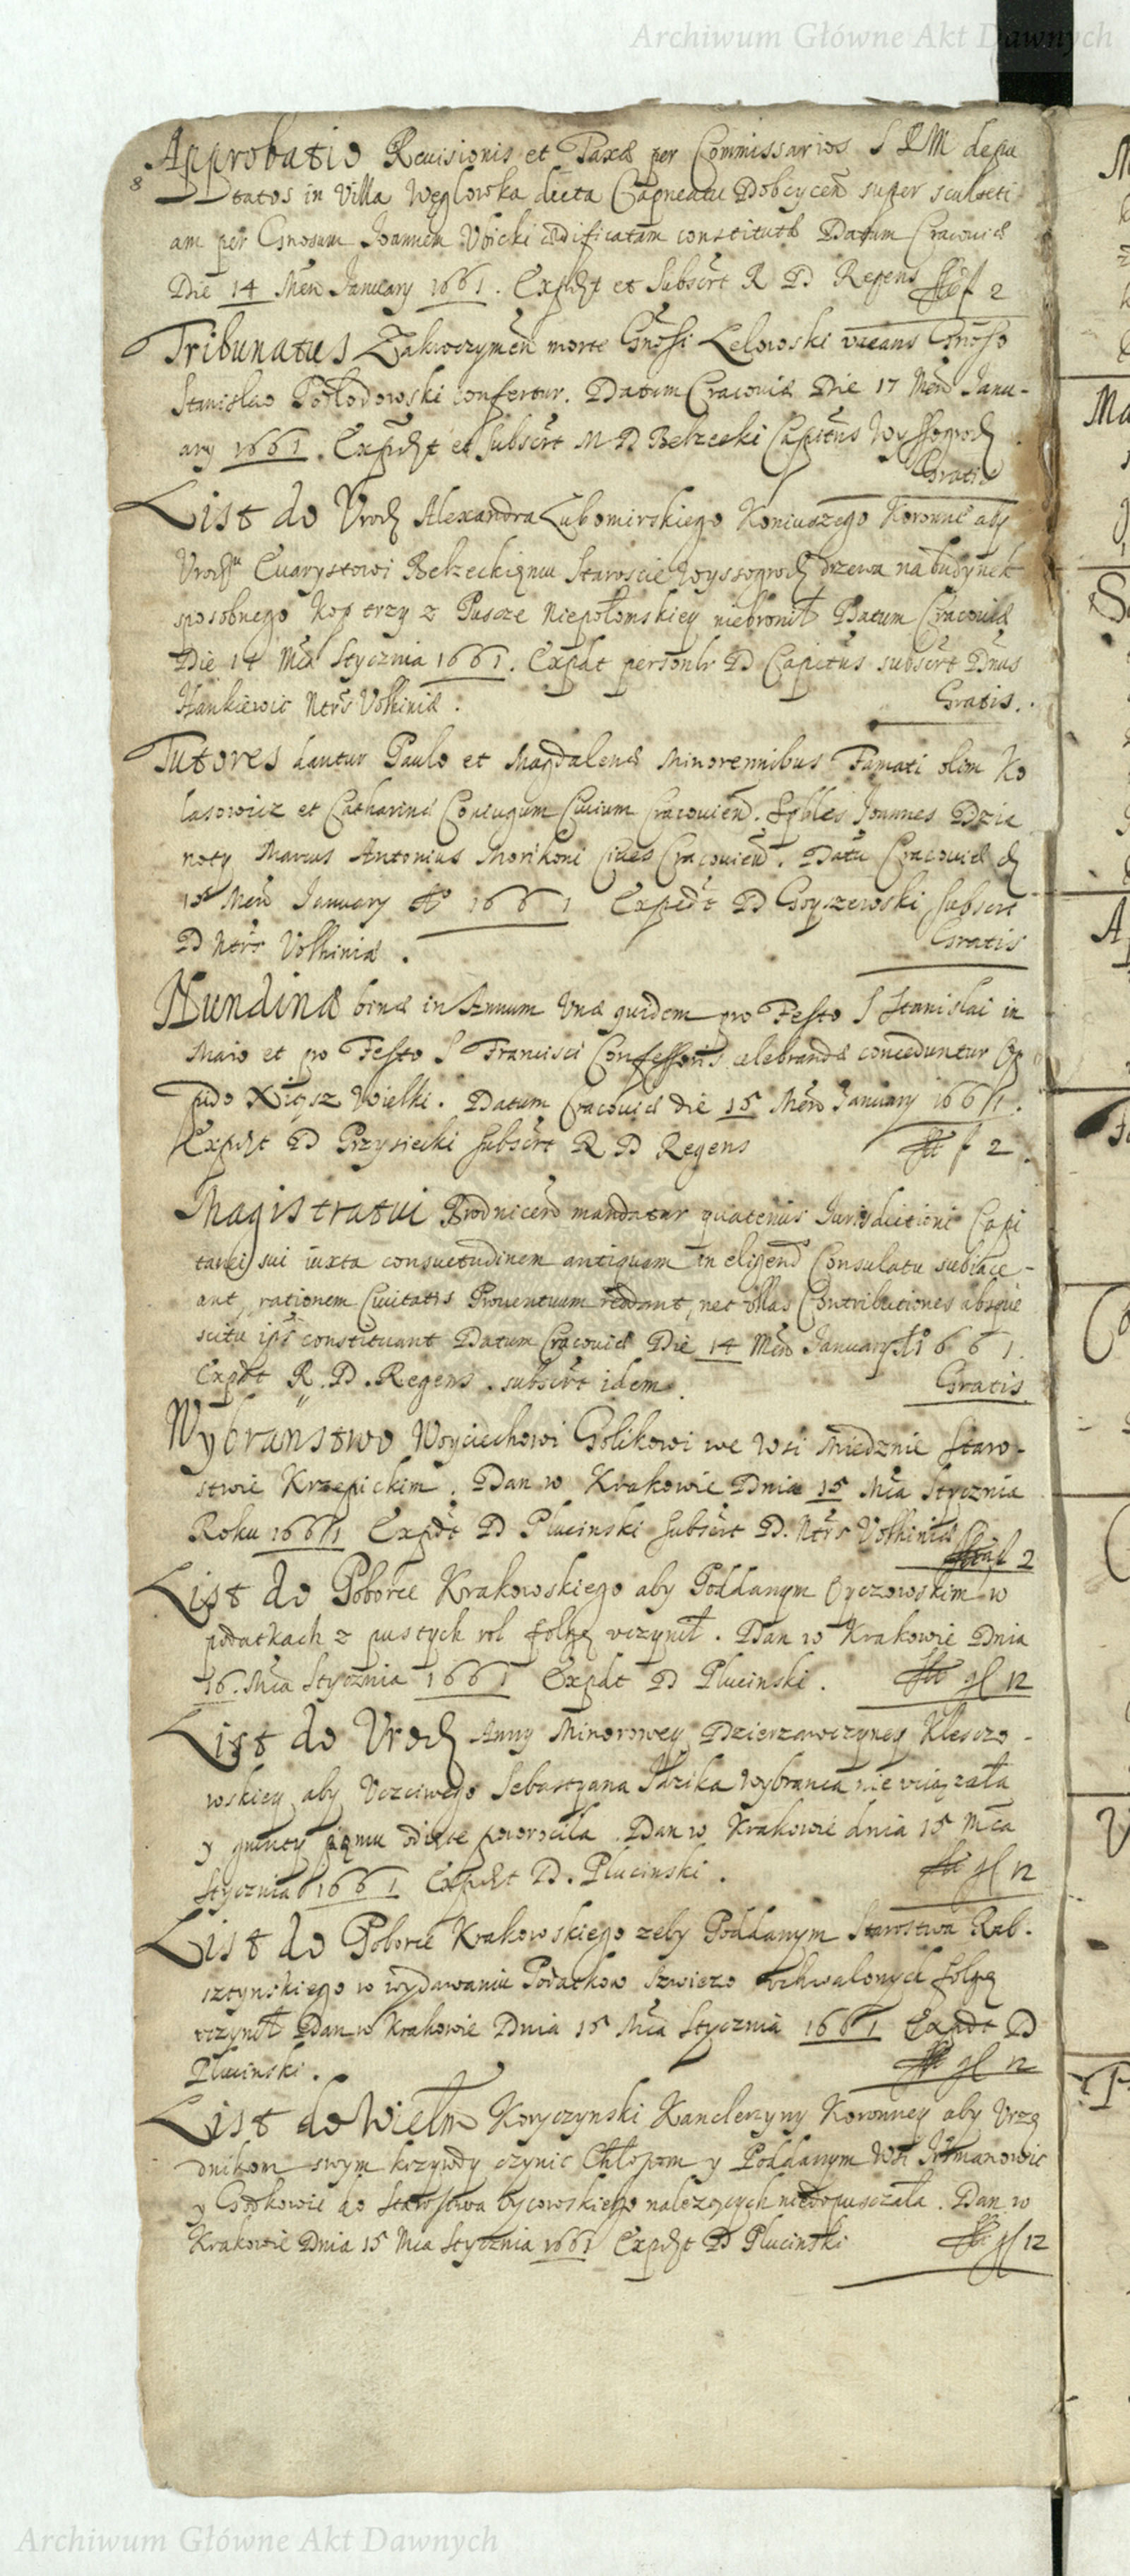 Archiwum Główne Akt Dawnych
8
Approbatio Reuisionis et Taxæ per Commissarios S R M depu
tatos in Villa Węglowka dicta Capneatu Dobcycen super sculteti
am per Gnosum Joannem Vbicki ædificatam constitutæ Datum Cracouiæ
Die 14 Men January 1661. Expdt et Subscrt R D Regens f 2
Tribunatus Zakroczymen morte Gnosi Lelowski vacans Gnoso
Stanislao Posłodowski confertur. Datum Cracouiæ Die 17 Men Janu-
ary 1661. Expdt et Subscrt M D Bełzecki Capitns Wyssogrod
Gratis
List do Vrod Alexandra Lubomirskiego Koniuszego Koronne aby
Vrod Euarystowi Bełzeckiemu Staroscie Wyssogrod drzewa na budynek
sposobnego Kop trzy z Puscze Niepołomskiey niebronił Datum Cracouiæ
Die 14 Mca Stycznia 1661. Expdt personlr D Capitns subscrt Dnus
Hankiewic Ntrs Vołhiniæ.
Gratis.
Tutores dantur Paulo et Magdalenæ Minorennibus Famati olim Ko
lasowicz et Catharinæ Coniugum Ciuium Cracouien. Spbles Joannes Dzia
noty Marcus Antonius Morikoni Ciues Cracouien. Datu Cracouiæ d
15 Men January Ao 1661 Expedt D Goyszewski Subscrt
D Ntrs Vołhiniæ.
Gratis
Nundinæ binæ in Annum Vnæ quidem pro Festo S Stanislai in
Maio et pro Festo S Francisci Confessoris celebrandæ conceduntur Op
pido Xiąsz Wielki. Datum Cracouiæ die 15 Men January 1661.
Expdt D Przysiecki Subscrt R D Regens f 2.
Magistratui Brodnicen mandatur quatenus Jurisdictioni Capi
tanei sui iuxta consuetudinem antiquam in eligend Consulatu subiace-
ant, rationem Ciuitatis Prouentuum reddant, nec vllas Contributiones absque
scitu ips constituant Datum Cracouiæ Die 14 Men January 1661.
Expdt R. D. Regens. subscrt idem.
Gratis.
Wybraństwo Woyciechowi Golikowi we Wsi Miedznie Staro-
stwie Krzepickim. Dan w Krakowie Dnia 15 Mca Stycznia
Roku 1661 Expdt D Plucinski Subscrt D. Ntrs Vołhiniæ
2
List do Poborce Krakowskiego aby Poddanym Oyczowskim w
podatkach z pustych rol folgę vczynił. Dan w Krakowie Dnia
16. Mca Stycznia 1661 Expdt D Plucinski. gl 12
List do Vrod Anny Minorowey Dzierzawczyney Kleszczo-
wskiey aby Vczciwego Sebastyana Idzika Wybranca nie vciązała
y grunty iemu odięte powrociła. Dan w Krakowie dnia 15 Mca
Stycznia 1661 Expdt D. Plucinski. gl 12
List do Poborce Krakowskiego zeby Poddanym Starostwa Rab-
sztynskiego w wydawaniu Podatkow Swiezo vchwalonych folgę
vczynił Dan w Krakowie Dnia 15 Mca Stycznia 1661 Expdt D
Plucinski. gl 12
List do Wielm Koryczynski Kanclerzyny Koronney aby Vrzę
dnikom swym krzywdy czynic Chłopom y Poddanym Wsi
y do Starostwa Oycowskiego nalezących niedopusczała. Dan w
Krakowie Dnia 15 Mca Stycznia 1661 Expdt D Plucinski gl 12
Archiwum Główne Akt Dawnych